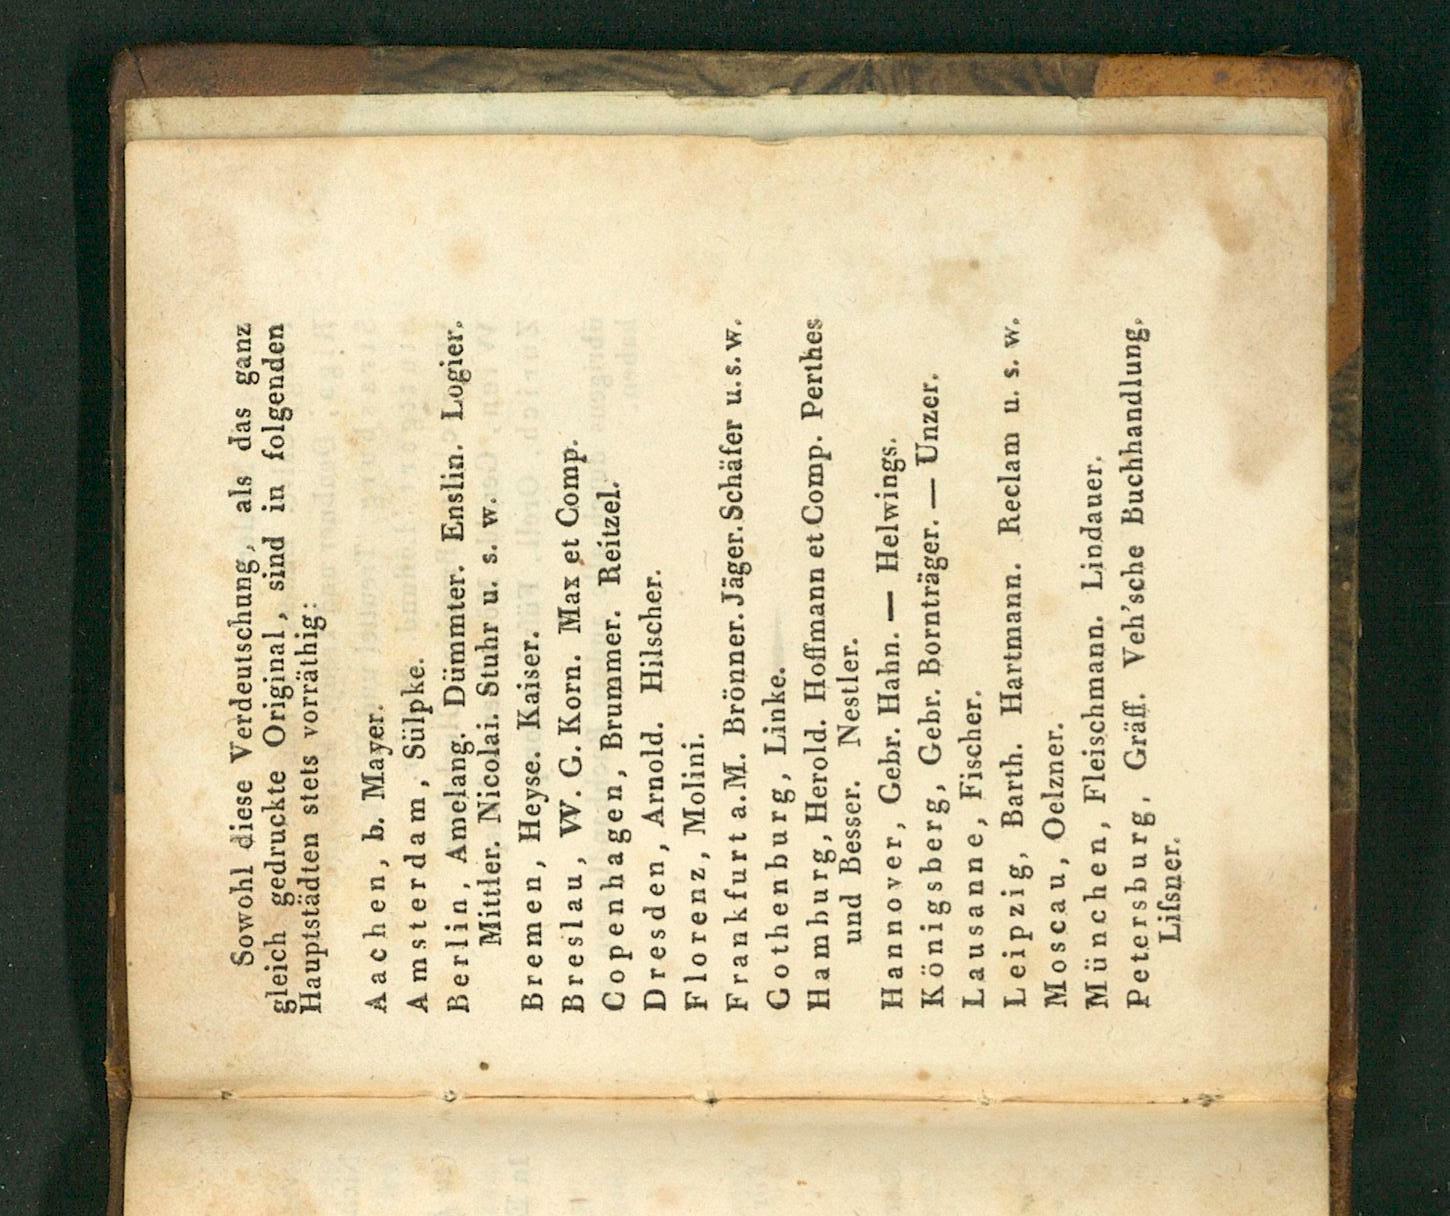 Sowohl diese Verdeutschung, als das ganz
gleich gedruckte Original, sind in folgenden
Hauptstädten stets vorräthig:
Aachen, b. Mayer.
Amsterdam, Sülpke.
Berlin, Amelang. Dümmter. Enslin. Logier.
Mittler. Nicolai. Stuhr u. s. w.
Bremen, Heyse. Kaiser.
Breslau, W. G. Korn. Max et Comp.
Copenhagen, Brummer. Reitzel.
Dresden, Arnold. Hilscher.
Florenz, Molini.
Frankfurt a. M. Brönner. Jäger. Schäfer u. s. w.
Gothenburg, Linke.
Hamburg, Herold. Hoffmann et Comp. Perthes
und Besser. Nestler.
Hannover, Gebr. Hahn. — Helwings.
Königsberg, Gebr. Bornträger. — Unzer.
Lausanne, Fischer.
Leipzig, Barth. Hartmann. Reclam u. s. w.
Moscau, Oelzner.
München, Fleischmann. Lindauer.
Petersburg, Gräff. Veh'sche Buchhandlung.
Liſsner.